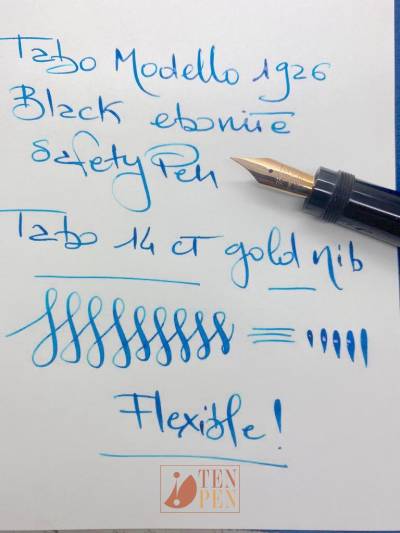 Tabo Modello 1926
Black ebonite
Safety Pen
Tabo 14 ct gold nib
Flexible!
TEN
PEN